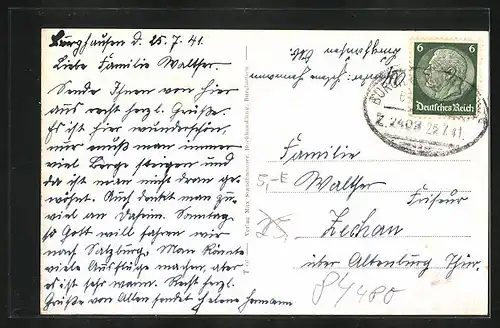 Burghausen d. 25.7.41.
Liebe Familie Walther.
Sende Ihnen von hier
aus recht herzl. Grüße.
Es ist hier wunderschön,
nur muß man immer
viel Berge steigen und
da ist man nicht dran ge-
wöhnt. Auch denkt man zu-
viel an Daheim. Sonntag
so Gott will fahren wir
nach Salzburg. Man könnte
viele Ausflüge machen, aber
es ist sehr warm. Recht herzl.
Grüße von Allen sendet Helene Hermann
Verlag Max Burghausen
6 6
Deutsches Reich
BURG
Z. 2403 25.7.41
Familie
Walther
Friseur
Zechau
über Altenburg Thür.
5,-E
84400